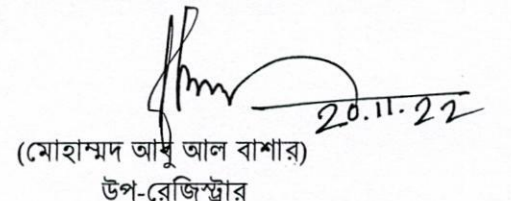 20.11.22
(মোহাম্মদ আবু আল বাশার)
উপ-রেজিস্ট্রার